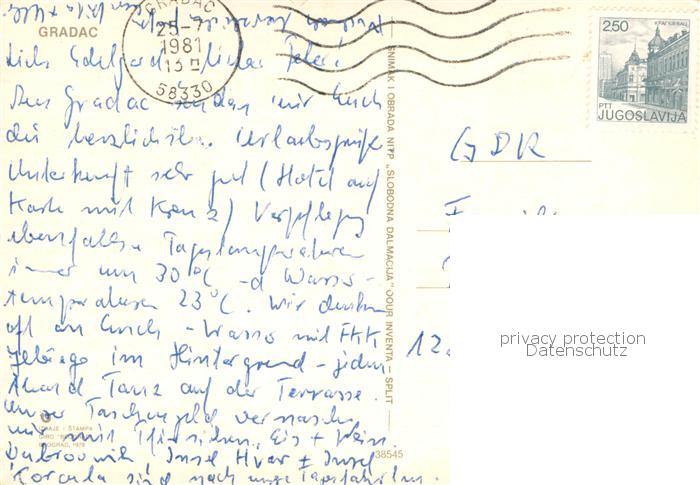 GRADAC
GRADAC
25-7
1981
13
58330
2,50
KRAGUJEVAC
PTT
JUGOSLAVIJA
Liebe Edelgard, lieber Peter!
Aus Gradac senden wir Euch
die herzlichsten Urlaubsgrüße
Unterkunft sehr gut (Hotel auf
Karte mit Kreuz) Verpflegung
ebenfalls. Tagestemperaturen
immer um 30°C - d Wasser-
temperaturen 23°C. Wir denken
oft an Euch - Wasser mit FKK
Gebirge im Hintergrund - jeden
Abend Tanz auf der Terrasse.
Unser Taschengeld vernaschen
wir mit Pfirsichen, Eis + Wein.
Dubrovnik, Insel Hvar + Insel
Korcula sind noch unsere Tagesfahrten.
SNIMAK I OBRADA NITP „SLOBODNA DALMACIJA" OOUR INVENTA - SPLIT
GDR
12.
privacy protection
Datenschutz
IZDAJE I ŠTAMPA
BEOGRAD, 1979
38545